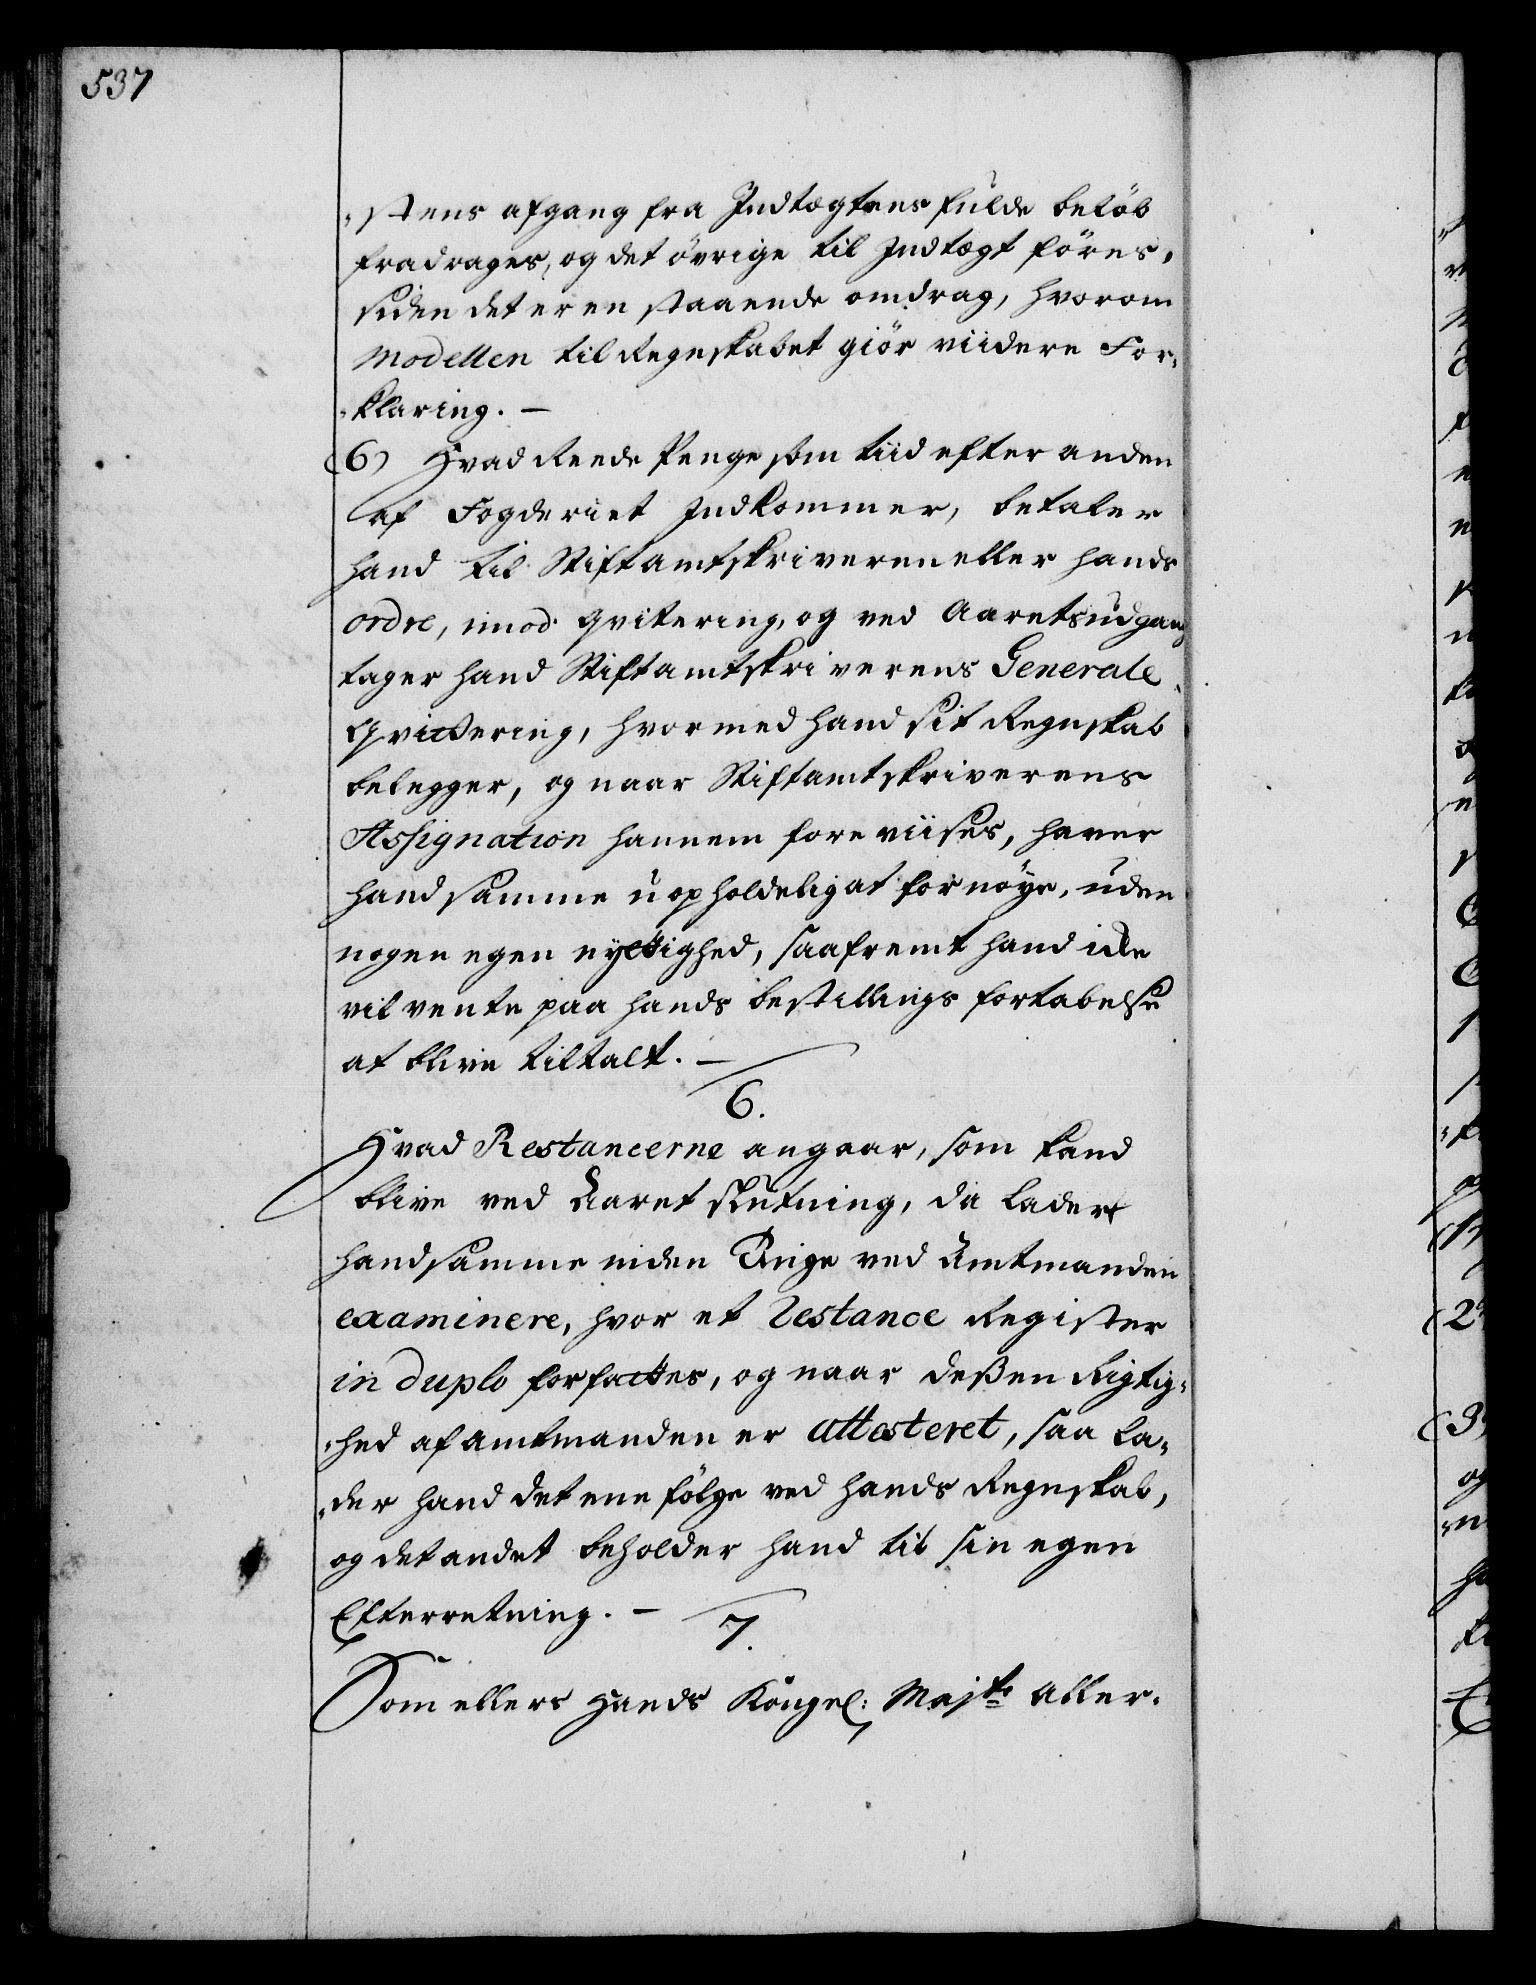 537
„stens afgang fra Indtægtens fulde beløb
fradrages, og det øvrige til Indtægt føres,
siden det er en staaende omdrag, hvorom
Modellen til Regnskabet giör viidere For„
„klaring. —
(6) Hvad Reede Penge som tiid efter anden
af Fogderiet Indkommer, betaler
hand til Stiftamtskriveren eller hands
ordre, imod qvitering, og ved Aarets udgang
tager hand Stiftamtskriverens Generale
Qvittering, hvormed hand sit Regnskab
belegger, og naar Stiftamtskriverens
Assignation hannem foreviises, haver
hand samme uopholdelig at fornøye, uden
nogen egen nyttighed, saafremt hand icke
vil vente paa hands bestillings fortabelse
at blive tiltalt. —
6.
Hvad Restancerne angaar, som kand
blive ved Aaret slutning, da lader
hand samme inden Tinge ved Amtmanden
examinere, hvor et Restance Register
in duplo forfattes, og naar dessen Rigtig„
„hed af amtmanden er attesteret, saa la„
„der hand det ene følge ved hands Regnskab,
og det andet beholder hand til sin egen
Efterretning. —
7.
Som ellers Hands Kongel: Majts aller„